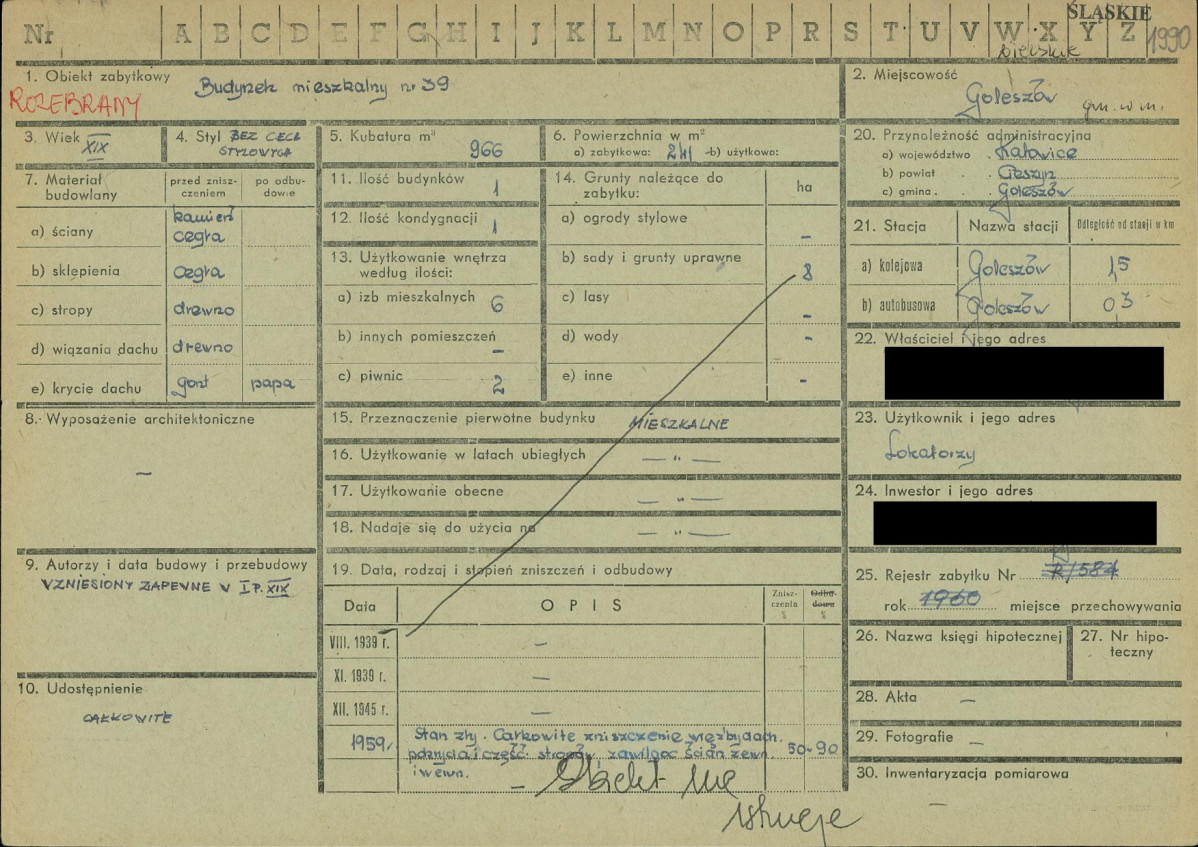 Nr A B C D E F G H I J K L M N O P R S T U V W X Y Z
ŚLĄSKIE
bielskie
1990
1. Obiekt zabytkowy Budynek mieszkalny nr 39
ROZEBRANY
2. Miejscowość
Goleszów gm. w m.
3. Wiek XIX
4. Styl BEZ CECH
STYLOWYCH
5. Kubatura m³
966
6. Powierzchnia w m²
a) zabytkowa: 241 b) użytkowa:
7. Materiał budowlany
przed zniszczeniem
po odbudowie
a) ściany kamień
cegła
b) sklepienia cegła
c) stropy drewno
d) wiązania dachu drewno
e) krycie dachu gont papa
8. Wyposażenie architektoniczne
—
9. Autorzy i data budowy i przebudowy
WZNIESIONY ZAPEWNE W I P. XIX
10. Udostępnienie
CAŁKOWITE
11. Ilość budynków 1
12. Ilość kondygnacji 1
13. Użytkowanie wnętrza
według ilości:
a) izb mieszkalnych 6
b) innych pomieszczeń –
c) piwnic 2
14. Grunty należące do
zabytku: ha
a) ogrody stylowe –
b) sady i grunty uprawne 8
c) lasy –
d) wody –
e) inne –
15. Przeznaczenie pierwotne budynku MIESZKALNE
16. Użytkowanie w latach ubiegłych — " —
17. Użytkowanie obecne — " —
18. Nadaje się do użycia na — " —
19. Data, rodzaj i stopień zniszczeń i odbudowy
Data OPIS Zniszczenia % Odbudowa %
VIII. 1939 r. —
XI. 1939 r. —
XII. 1945 r. —
1959. Stan zły. Całkowite zniszczenie więźby dach.
pokrycia i część stropów, zawilgoc ścian zewn. 50-90
i wewn.
– Obiekt nie
istnieje
20. Przynoleżność administracyjna
a) województwo Katowice
b) powiat Cieszyn
c) gmina Goleszów
21. Stacja Nazwa stacji Odległość od stacji w km
a) kolejowa Goleszów 1,5
b) autobusowa Goleszów 0,3
22. Właściciel i jego adres
23. Użytkownik i jego adres
Lokatorzy
24. Inwestor i jego adres
25. Rejestr zabytku Nr R/584
rok 1960 miejsce przechowywania
26. Nazwa księgi hipotecznej
27. Nr hipoteczny
28. Akta —
29. Fotografie —
30. Inwentaryzacja pomiarowa
—